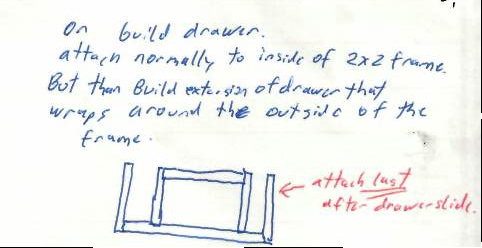 On build drawer.
attach normally to inside of 2x2 frame.
But than Build extersion of drawer that
wraps around the outside of the
frame.
attach last
after drawer slide.